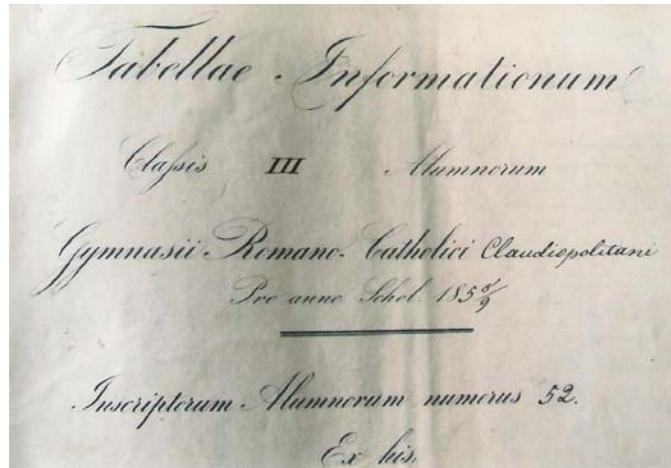 Tabellae Informationum
Classis III Alumnorum
Gymnasii Romano-Catholici Claudiopolitani
Pro anno Schol. 185 8/9
Inscriptorum Alumnorum numerus 52.
Ex his.